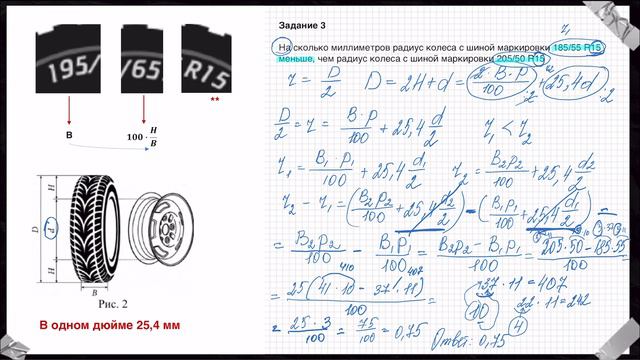 195/
/65
R15
**
B
100 · H/B
D
H
d
H
B
Рис. 2
В одном дюйме 25,4 мм
Задание 3
На сколько миллиметров радиус колеса с шиной маркировки 185/55 R15
меньше, чем радиус колеса с шиной маркировки 205/50 R15
r₁
r₂
r = D/2 D = 2H + d = 2·B·P/100 + 25,4d :2 :2
D/2 = r = B·P/100 + 25,4 d/2 r₁ < r₂
r₁ = B₁·P₁/100 + 25,4 d₁/2 r₂ = B₂P₂/100 + 25,4 d₂/2
r₂ − r₁ = (B₂P₂/100 + 25,4 d₂/2) − (B₁P₁/100 + 25,4 d₁/2) =
= B₂P₂/100 − B₁P₁/100 = B₂P₂ − B₁P₁/100 = 205·50 − 185·55/100
= 25(41·10 − 37·11)/100 = 410 407
37·11 = 407
22·11 = 242
= 25·3/100 = 75/100 = 0,75 Ответ: 0,75